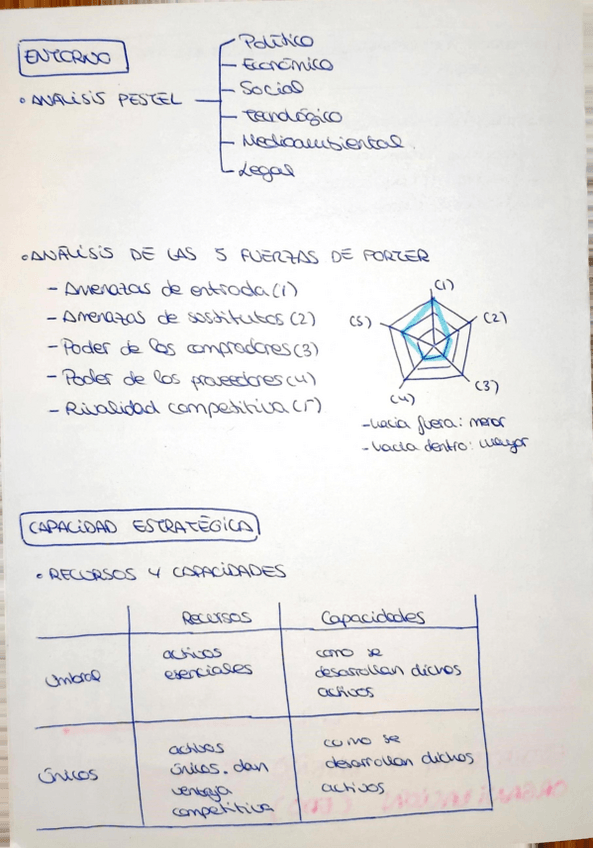 ENTORNO
• ANALISIS PESTEL
Político
Económico
Social
Tecnológico
Medioambiental
Legal
• ANÁLISIS DE LAS 5 FUERZAS DE PORTER
- Amenazas de entrada (1)
- Amenazas de sostitutos (2)
- Poder de los compradores (3)
- Poder de los proveedores (4)
- Rivalidad competitiva (5)
(1)
(5) (2)
(4) (3)
- hacia fuera: menor
- hacia dentro: mayor
CAPACIDAD ESTRATÉGICA
• RECURSOS Y CAPACIDADES
Recursos Capacidades
Umbral
activos
esenciales
como se
desarrollan dichos
activos
Únicos
activos
únicos. dan
ventaja
competitiva
como se
desarrollan dichos
activos